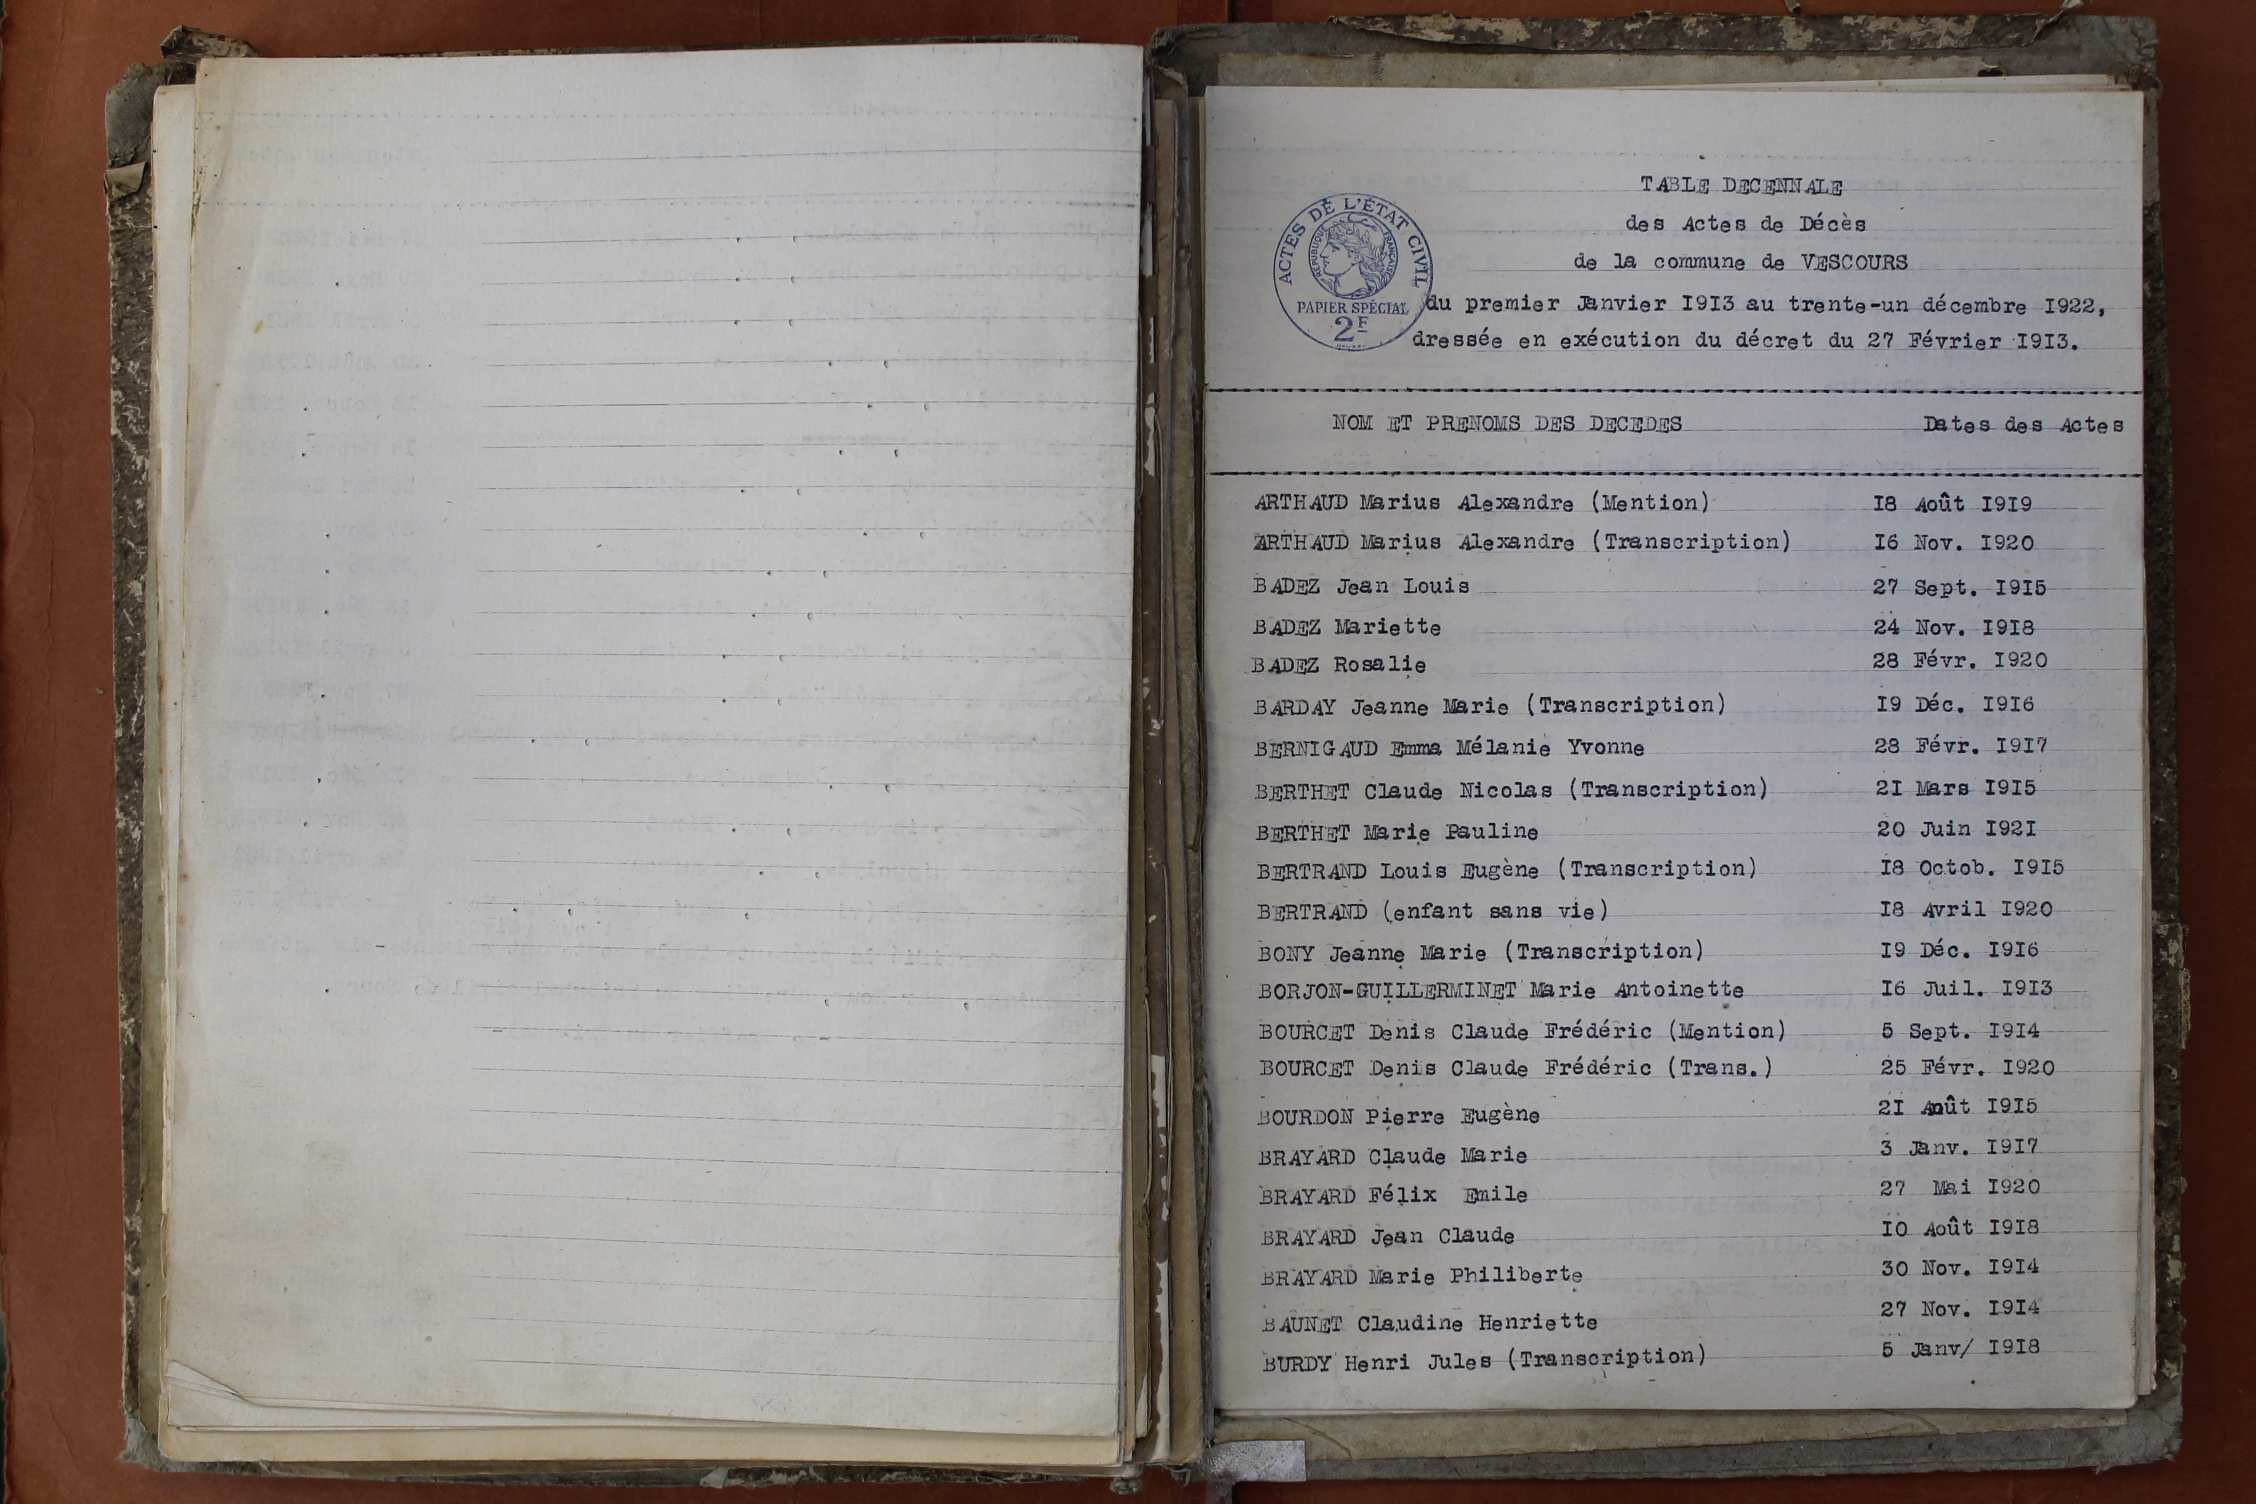 TABLE DECENNALE
des Actes de Décès
de la commune de VESCOURS
ACTES DE L'ÉTAT CIVIL
RÉPUBLIQUE FRANÇAISE
PAPIER SPÉCIAL
2F
du premier Janvier I9I3 au trente-un décembre I922,
dressée en exécution du décret du 27 Février I9I3.
NOM ET PRENOMS DES DECEDES Dates des Actes
ARTHAUD Marius Alexandre (Mention) I8 Août I9I9
ARTHAUD Marius Alexandre (Transcription) I6 Nov. I920
BADEZ Jean Louis 27 Sept. I9I5
BADEZ Mariette 24 Nov. I9I8
BADEZ Rosalie 28 Févr. I920
BARDAY Jeanne Marie (Transcription) I9 Déc. I9I6
BERNIGAUD Emma Mélanie Yvonne 28 Févr. I9I7
BERTHET Claude Nicolas (Transcription) 2I Mars I9I5
BERTHET Marie Pauline 20 Juin I92I
BERTRAND Louis Eugène (Transcription) I8 Octob. I9I5
BERTRAND (enfant sans vie) I8 Avril I920
BONY Jeanne Marie (Transcription) I9 Déc. I9I6
BORJON-GUILLERMINET Marie Antoinette I6 Juil. I9I3
BOURCET Denis Claude Frédéric (Mention) 5 Sept. I9I4
BOURCET Denis Claude Frédéric (Trans.) 25 Févr. I920
BOURDON Pierre Eugène 2I Août I9I5
BRAYARD Claude Marie 3 Janv. I9I7
BRAYARD Félix Emile 27 Mai I920
BRAYARD Jean Claude I0 Août I9I8
BRAYARD Marie Philiberte 30 Nov. I9I4
BAUNET Claudine Henriette 27 Nov. I9I4
BURDY Henri Jules (Transcription) 5 Janv/ I9I8